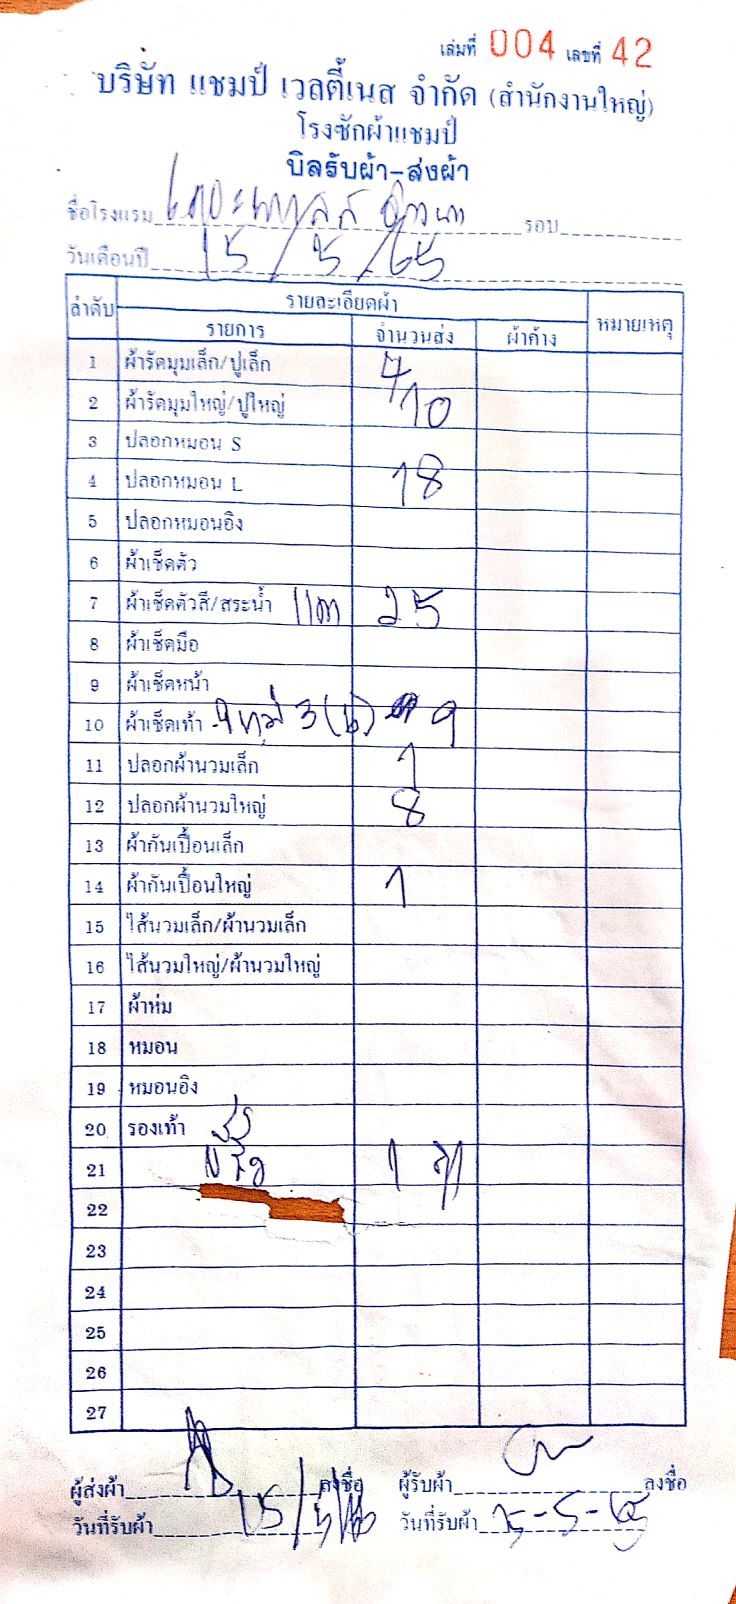 เล่มที่ 004 เลขที่ 42
บริษัท แชมป์ เวลตี้เนส จำกัด (สำนักงานใหญ่)
โรงซักผ้าแชมป์
บิลรับผ้า-ส่งผ้า
ชื่อโรงแรม รอบ
วันเดือนปี 15/5/65
ลำดับ รายละเอียดผ้า หมายเหตุ
รายการ จำนวนส่ง ผ้าค้าง
1 ผ้ารัดมุมเล็ก/ปูเล็ก 7
2 ผ้ารัดมุมใหญ่/ปูใหญ่ 10
3 ปลอกหมอน S
4 ปลอกหมอน L 18
5 ปลอกหมอนอิง
6 ผ้าเช็ดตัว
7 ผ้าเช็ดตัวสี/สระน้ำ 25
8 ผ้าเช็ดมือ
9 ผ้าเช็ดหน้า
10 ผ้าเช็ดเท้า 9
11 ปลอกผ้านวมเล็ก 1
12 ปลอกผ้านวมใหญ่ 8
13 ผ้ากันเปื้อนเล็ก
14 ผ้ากันเปื้อนใหญ่ 1
15 ไส้นวมเล็ก/ผ้านวมเล็ก
16 ไส้นวมใหญ่/ผ้านวมใหญ่
17 ผ้าห่ม
18 หมอน
19 หมอนอิง
20 รองเท้า
21 1
22
23
24
25
26
27
ผู้ส่งผ้า ลงชื่อ ผู้รับผ้า ลงชื่อ
วันที่รับผ้า 15/5/ วันที่รับผ้า 15-5-65